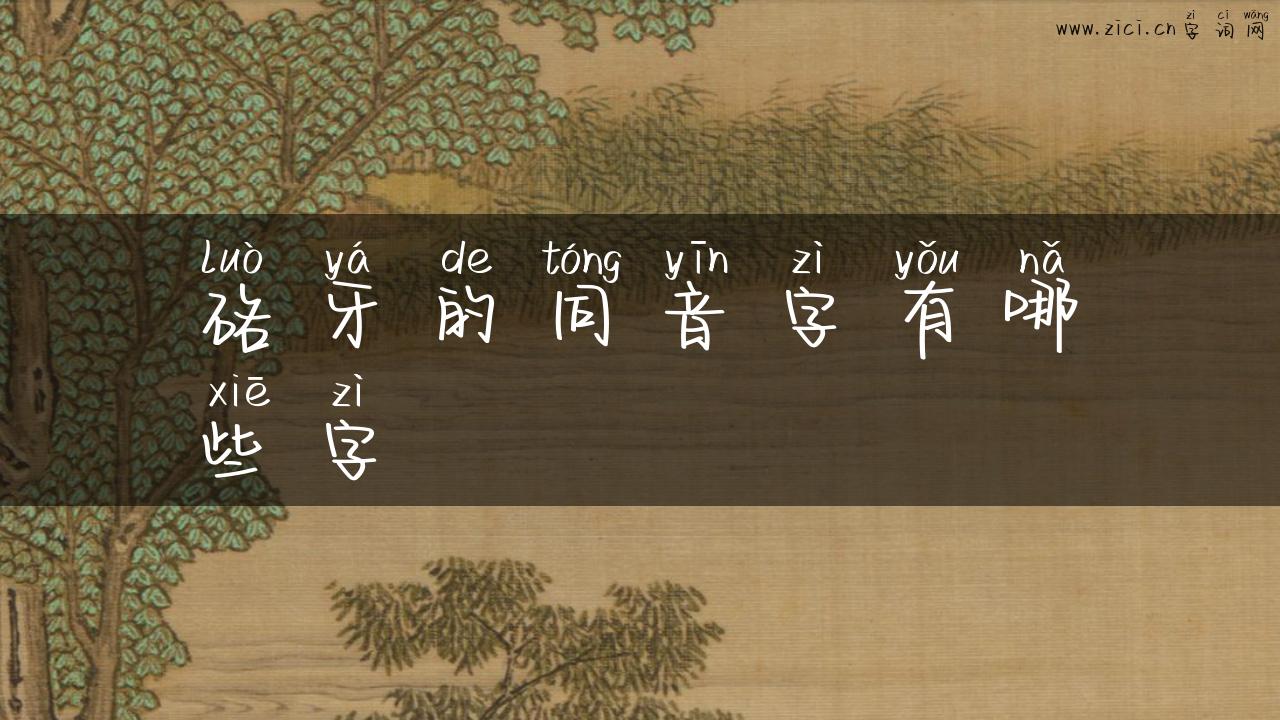 zì cí wǎng
www.zici.cn字词网
luò yá de tóng yīn zì yǒu nǎ
硌牙的同音字有哪
xiē zì
些字